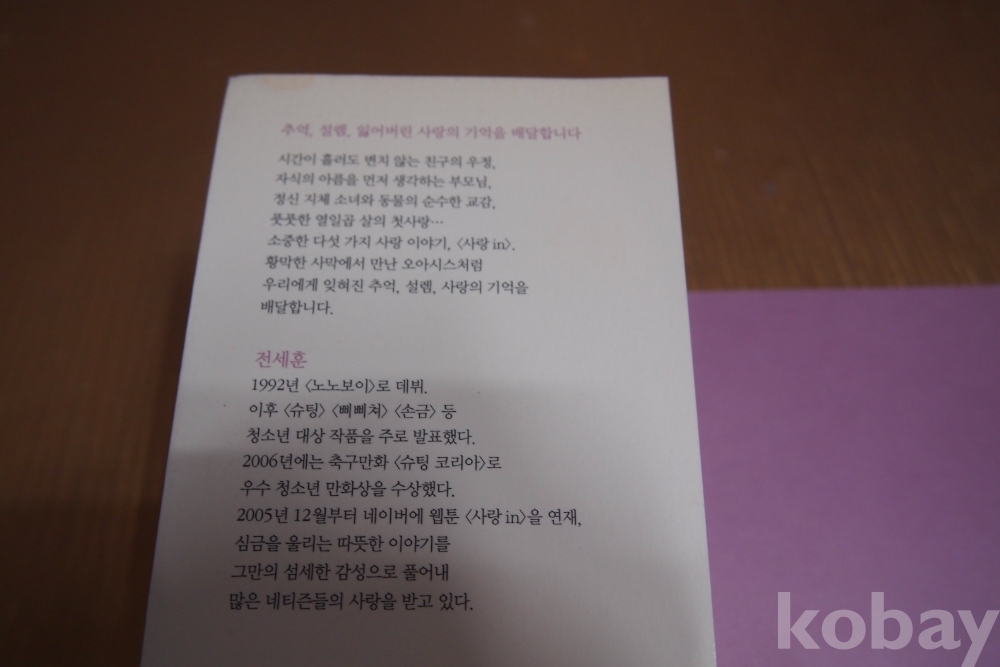 추억, 설렘, 잃어버린 사랑의 기억을 배달합니다
시간이 흘러도 변치 않는 친구의 우정,
자식의 아픔을 먼저 생각하는 부모님,
정신 지체 소녀와 동물의 순수한 교감,
풋풋한 열일곱 살의 첫사랑…
소중한 다섯 가지 사랑 이야기, 〈사랑 in〉.
황막한 사막에서 만난 오아시스처럼
우리에게 잊혀진 추억, 설렘, 사랑의 기억을
배달합니다.
전세훈
1992년 〈노노보이〉로 데뷔.
이후 〈슈팅〉 〈삐삐쳐〉 〈손금〉 등
청소년 대상 작품을 주로 발표했다.
2006년에는 축구만화 〈슈팅 코리아〉로
우수 청소년 만화상을 수상했다.
2005년 12월부터 네이버에 웹툰 〈사랑 in〉을 연재,
심금을 울리는 따뜻한 이야기를
그만의 섬세한 감성으로 풀어내
많은 네티즌들의 사랑을 받고 있다.
kobay